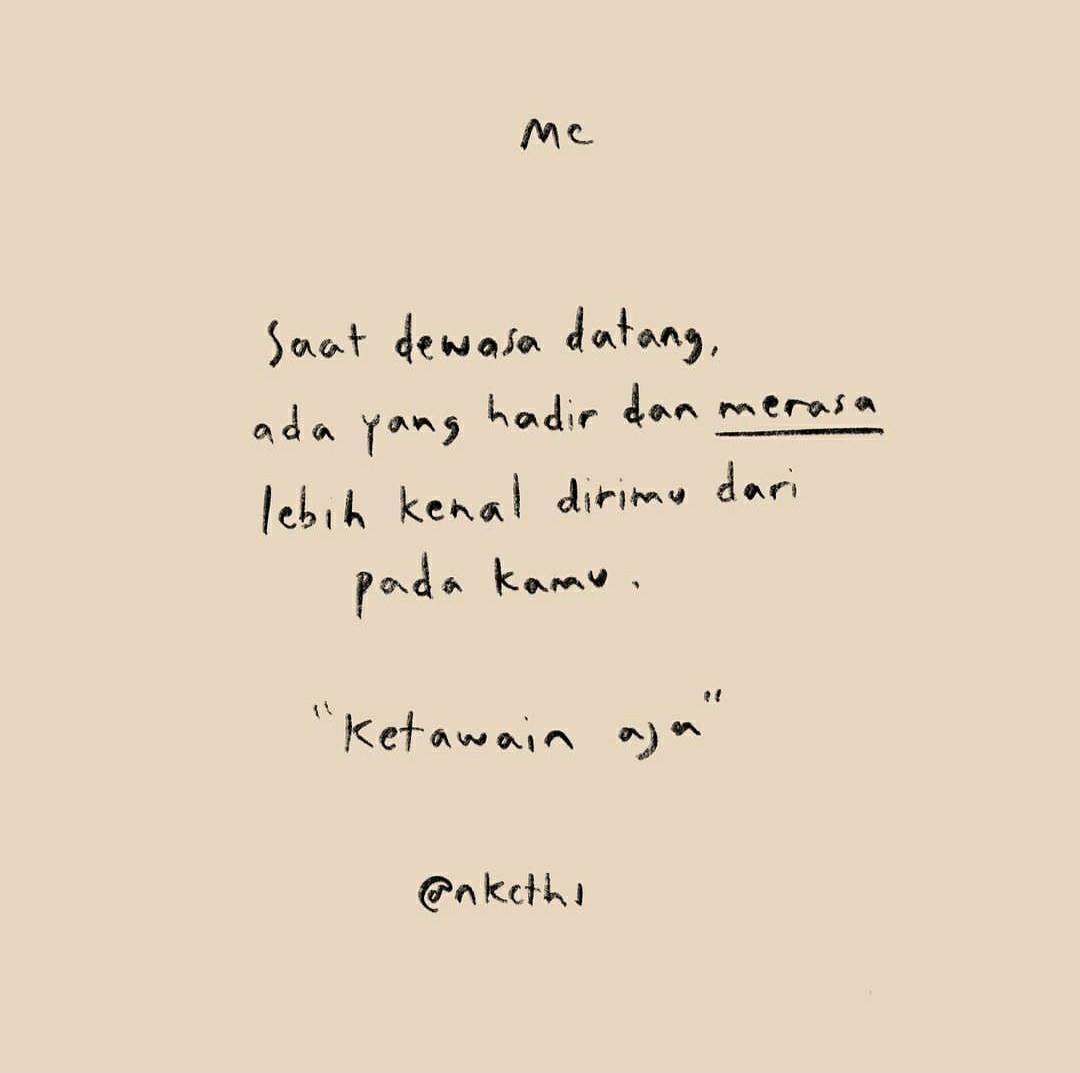 MC
Saat dewasa datang,
ada yang hadir dan merasa
lebih kenal dirimu dari
pada kamu.
"Ketawain aja"
@nkcthi